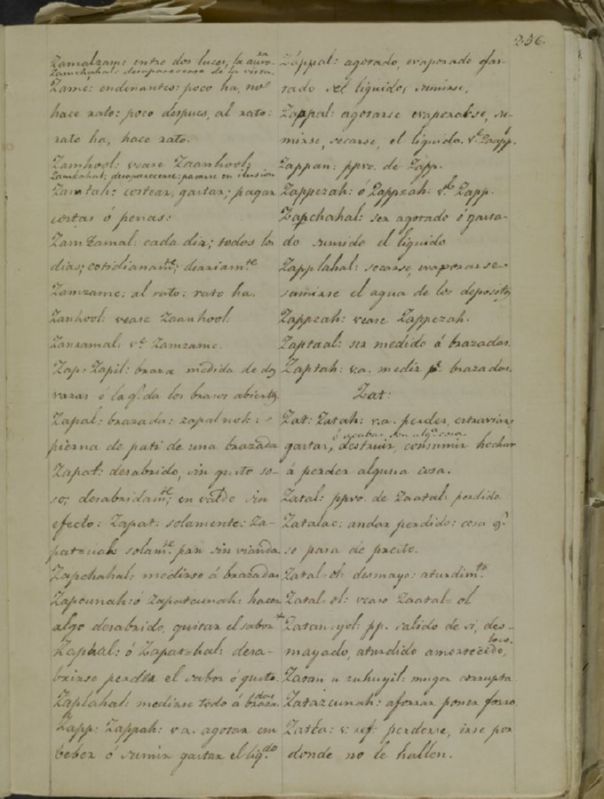 236.
Zamalzam: entre dos luces, la auro-ra
Zamchahal: desaparecerse de la vista.
Zame: endenantes: poco ha, no
hace rato: poco despues, al rato:
rato ha, hace rato.
Zamhool: vease Zaanhool;
Zamlahal: desaparecerse: pasarse en ilusion
Zamtah: costear, gastar; pagar
costas ó penas:
Zamzamal: cada dia; todos los
dias; cotidianamte; diariamte
Zamzame: al rato: rato ha.
Zanhool: vease Zaanhool.
Zanzamal: ve Zamzame.
Zap: Zapil: braza medida de dos
varas ó la q.e da los brazos abiertos
Zapal: brazada: zapal uok:
pierna de pati de una brazada
Zapat: desabrido, sin gusto so-
so; desabridamte; en valde sin
efecto: Zapat: solamente: Za-
patuah solamte pan sin vianda.
Zapchahal: medirse á brazadas
Zapcunah: ó Zapatcunah: hacer
algo desabrido, quitar el sabor
Zaphal: ó Zapathal: desa-
brirse perder el sabor ó gusto.
Zaplahal: medirse todo á brazadas
Zapp: Zappah: va. agotar em
beber ó sumir gastar el liqdo
Zappal: agotado, evaporado gas-
tado el liquido, sumirse.
Zappal: agotarse evaporarse, su-
mirse, secarse, el liquido. ve Zaapp.
Zappan: ppro. de Zapp.
Zappezah: ó Zappzah: ve Zapp.
Zapchahal: ser agotado ó gasta-
do sumido el liquido
Zapplahal: secarse, evaporarse
sumirse el agua de los depositos
Zappzah: vease Zappezah.
Zaptaal: ser medido á brazadas.
Zaptah: va. medir pr brazadas.
Zat:
Zat: Zatah: va. perder, extraviar,
ó acabar con alga cosa
gastar, destruir, consumir hechar
á perder alguna cosa.
Zatal: ppro. de Zaatal: perdido
Zatalac: andar perdido: cosa q.e
se para de pleito.
Zatal ol: desmayo: aturdimto
Zatal ol: vease Zaatal: ol
Zatan yol: pp. salido de si, des-
mayado, aturdido amortecido, loco.
Zatan u zuhuyil: muger corrupta
Zatazcunah: aforrar poner forro
Zatba: v: ref: perderse, irse por
donde no le hallen.